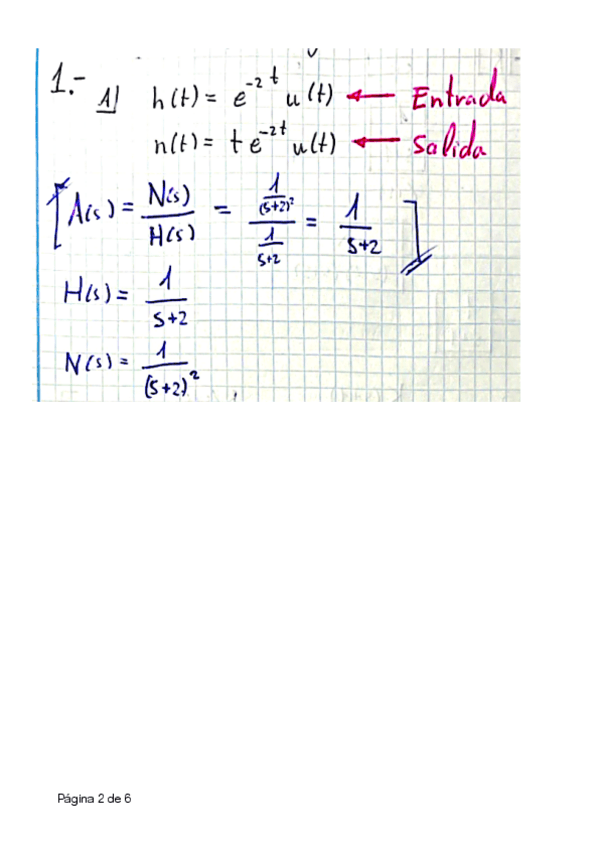 1.- 1) h(t) = e^-2t u(t) ← Entrada
n(t) = t e^-2t u(t) ← Salida
[A(s) = N(s)/H(s) = (1/(s+2)²)/(1/(s+2)) = 1/(s+2)]
H(s) = 1/(s+2)
N(s) = 1/(s+2)²
Página 2 de 6